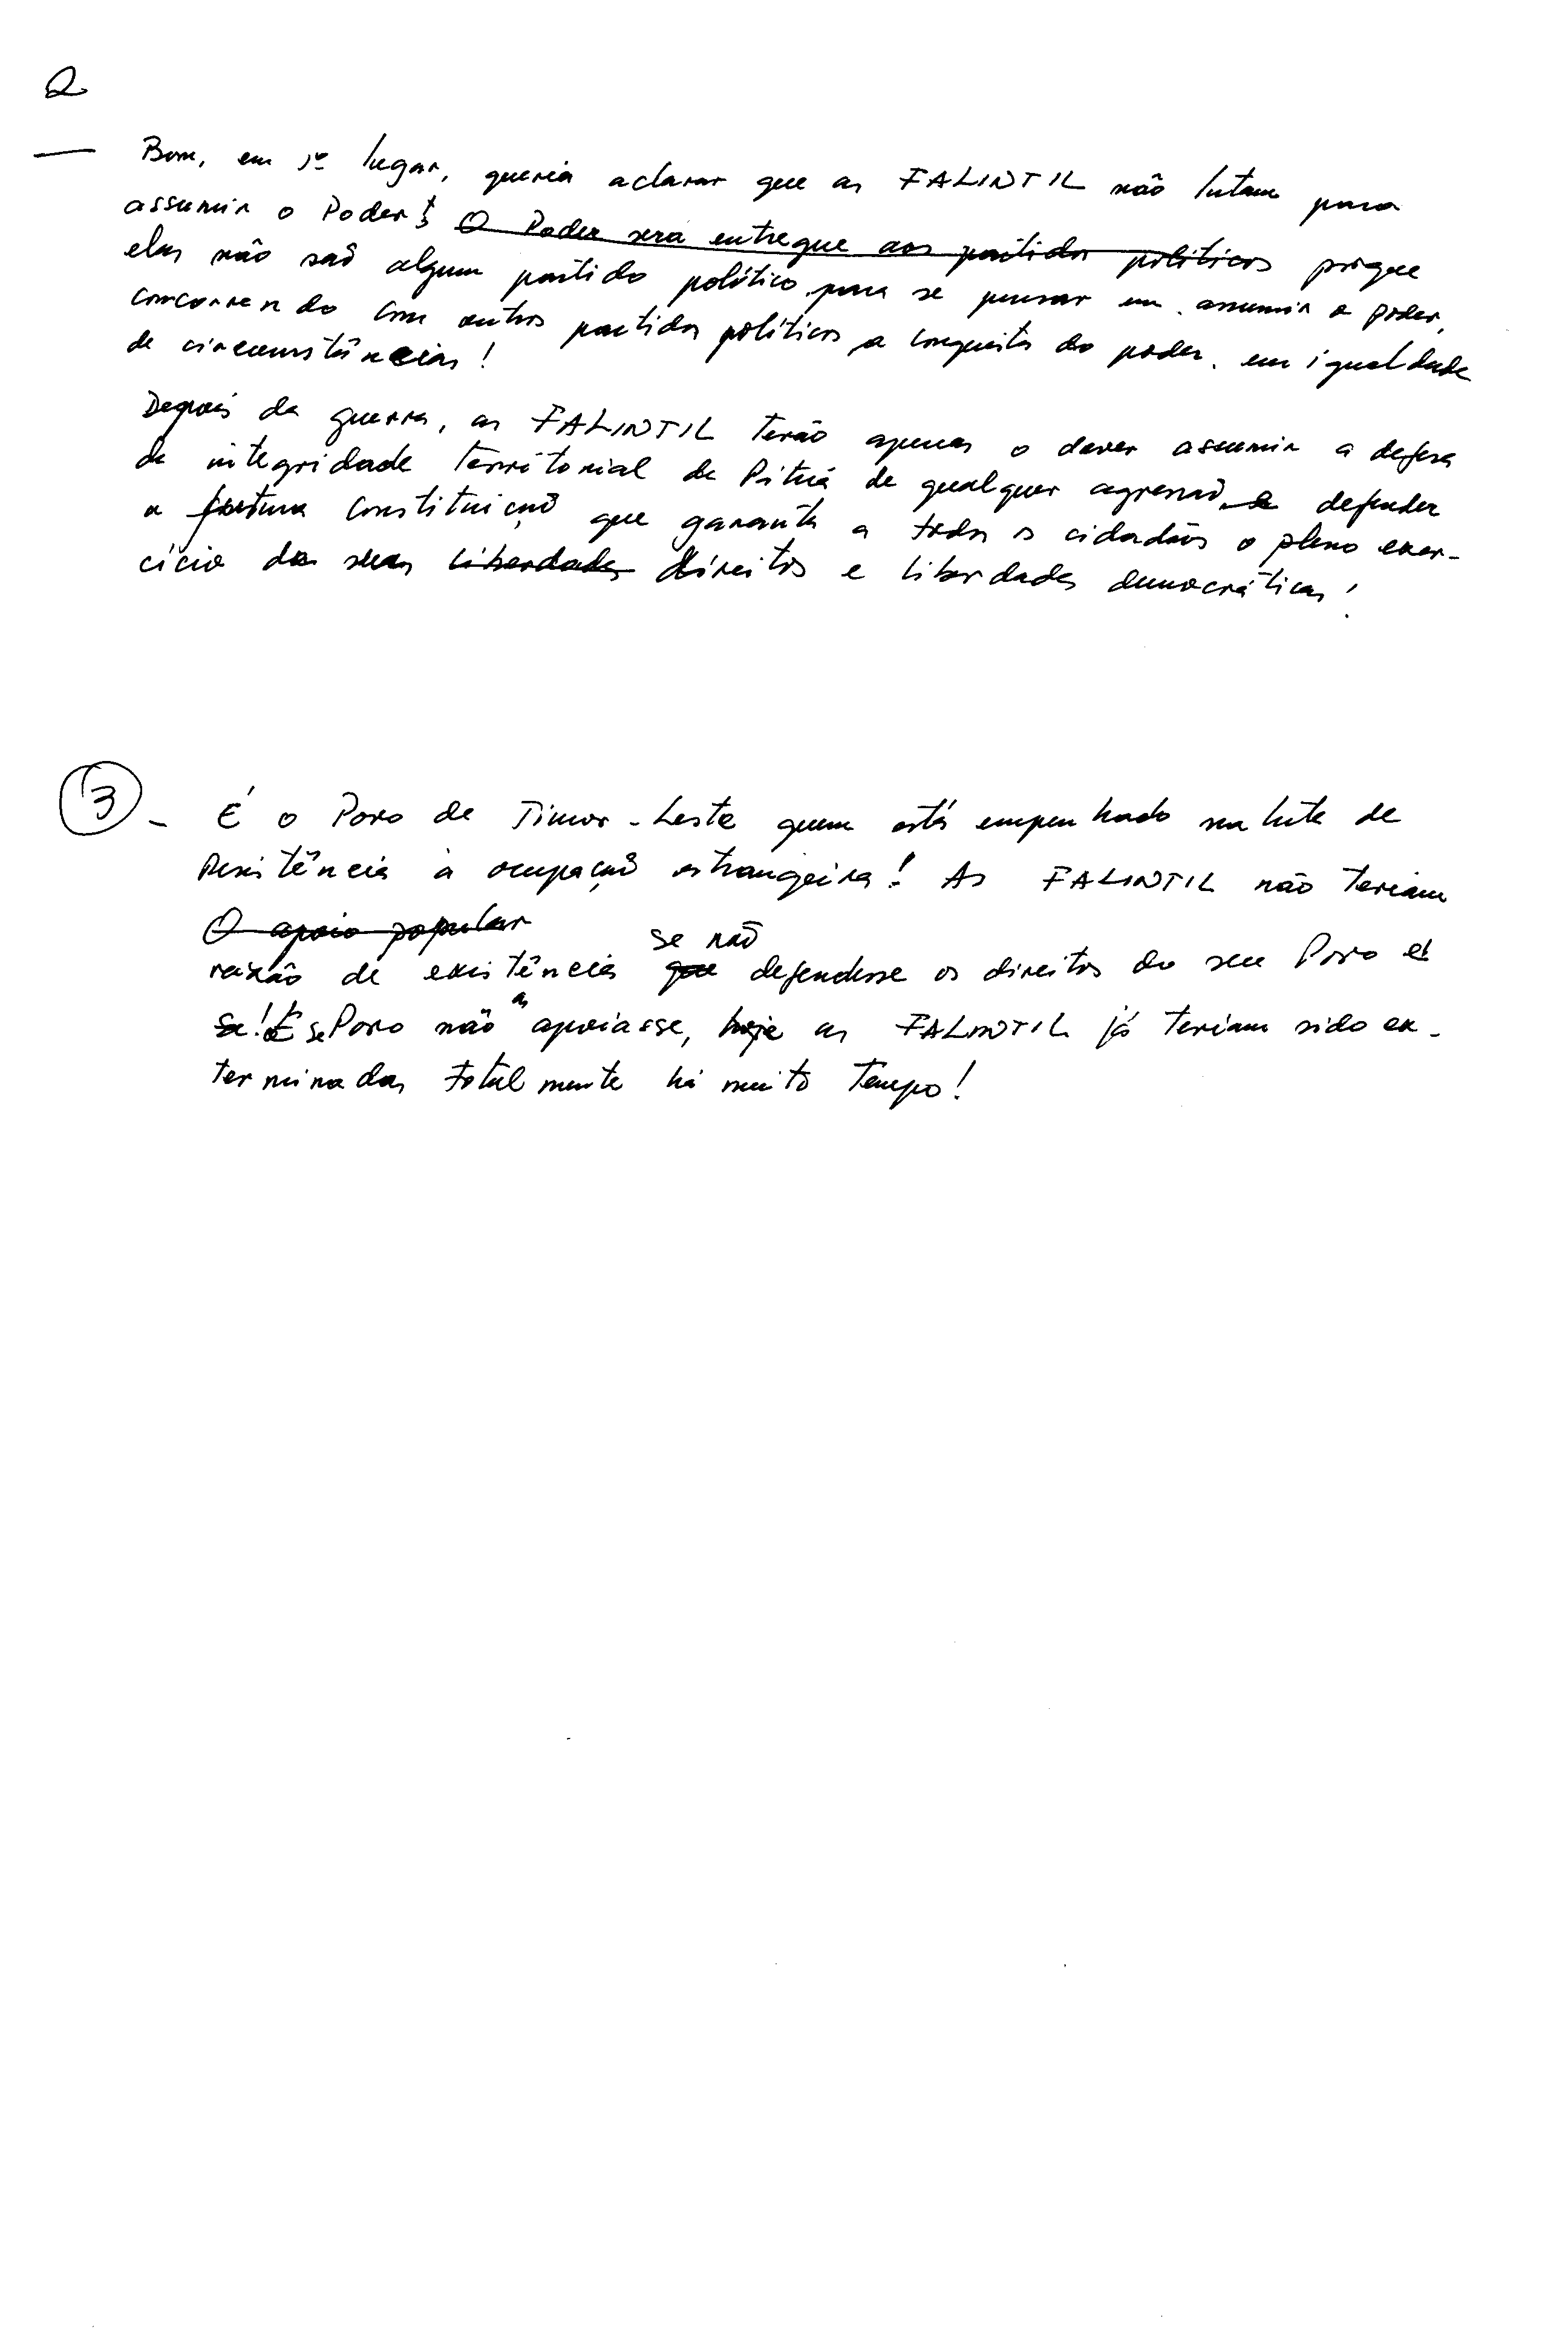 2
— Bom, em 1º lugar, queria aclarar que as FALINTIL não lutam para
assumir o Poder! O Poder será entregue aos partidos políticos porque
elas não são algum partido político para se pensar em assumir o poder,
concorrendo com outros partidos políticos a conquista do poder, em igualdade
de circumstâncias!
Depois da guerra, as FALINTIL terão apenas o dever assumir a defesa
da integridade territorial da Pátria de qualquer agressão e defender
a futura Constituição que garanta a todos os cidadãos o pleno exer-
cício dos seus liberdades direitos e liberdades democráticas!
3 - É o Povo de Timor-Leste quem está empenhado na luta de
Resistência à ocupação estrangeira! As FALINTIL não teriam
O apoio popular
se não
razão de existência que defendesse os direitos do seu Povo e
as
se! E se Povo não apoiasse, hoje as FALINTIL já teriam sido ex-
terminadas totalmente há muito tempo!